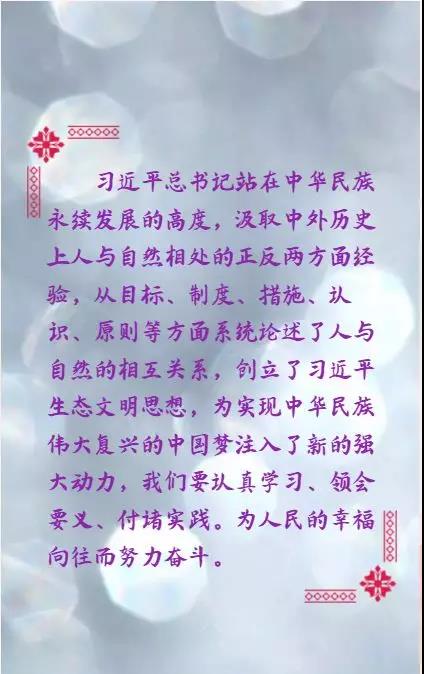 习近平总书记站在中华民族
永续发展的高度，汲取中外历史
上人与自然相处的正反两方面经
验，从目标、制度、措施、认
识、原则等方面系统论述了人与
自然的相互关系，创立了习近平
生态文明思想，为实现中华民族
伟大复兴的中国梦注入了新的强
大动力，我们要认真学习、领会
要义、付堵实践。为人民的幸福
向往而努力奋斗。